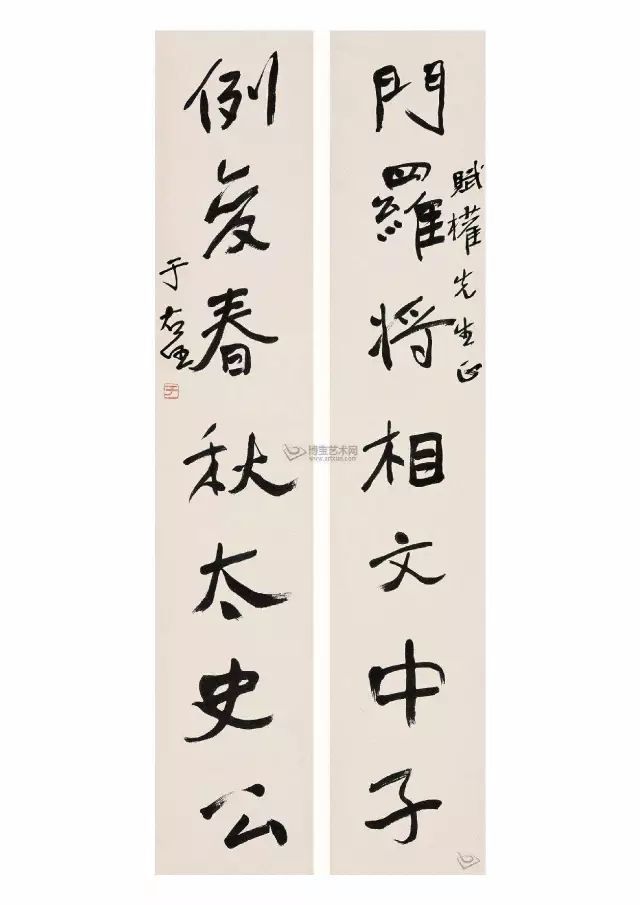 門羅将相文中子
賦權先生正
例變春秋太史公
于右任
博宝艺术网
www.artxun.com